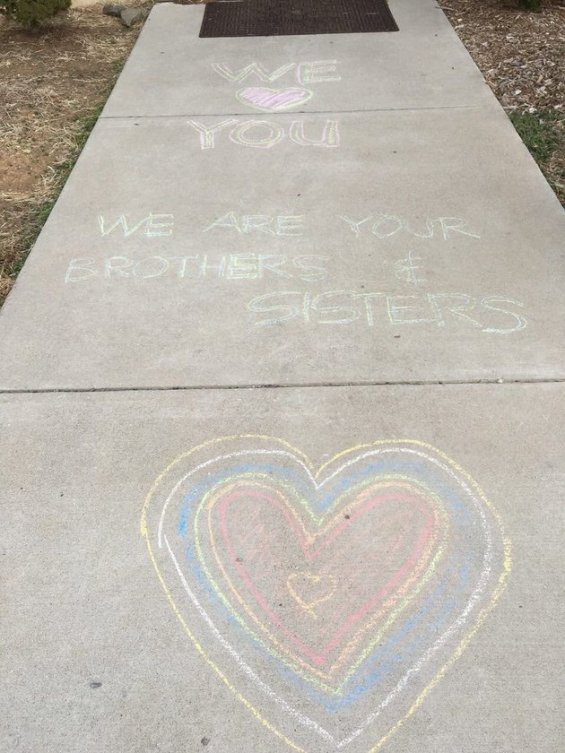 WE
YOU
WE ARE YOUR
BROTHERS &
SISTERS